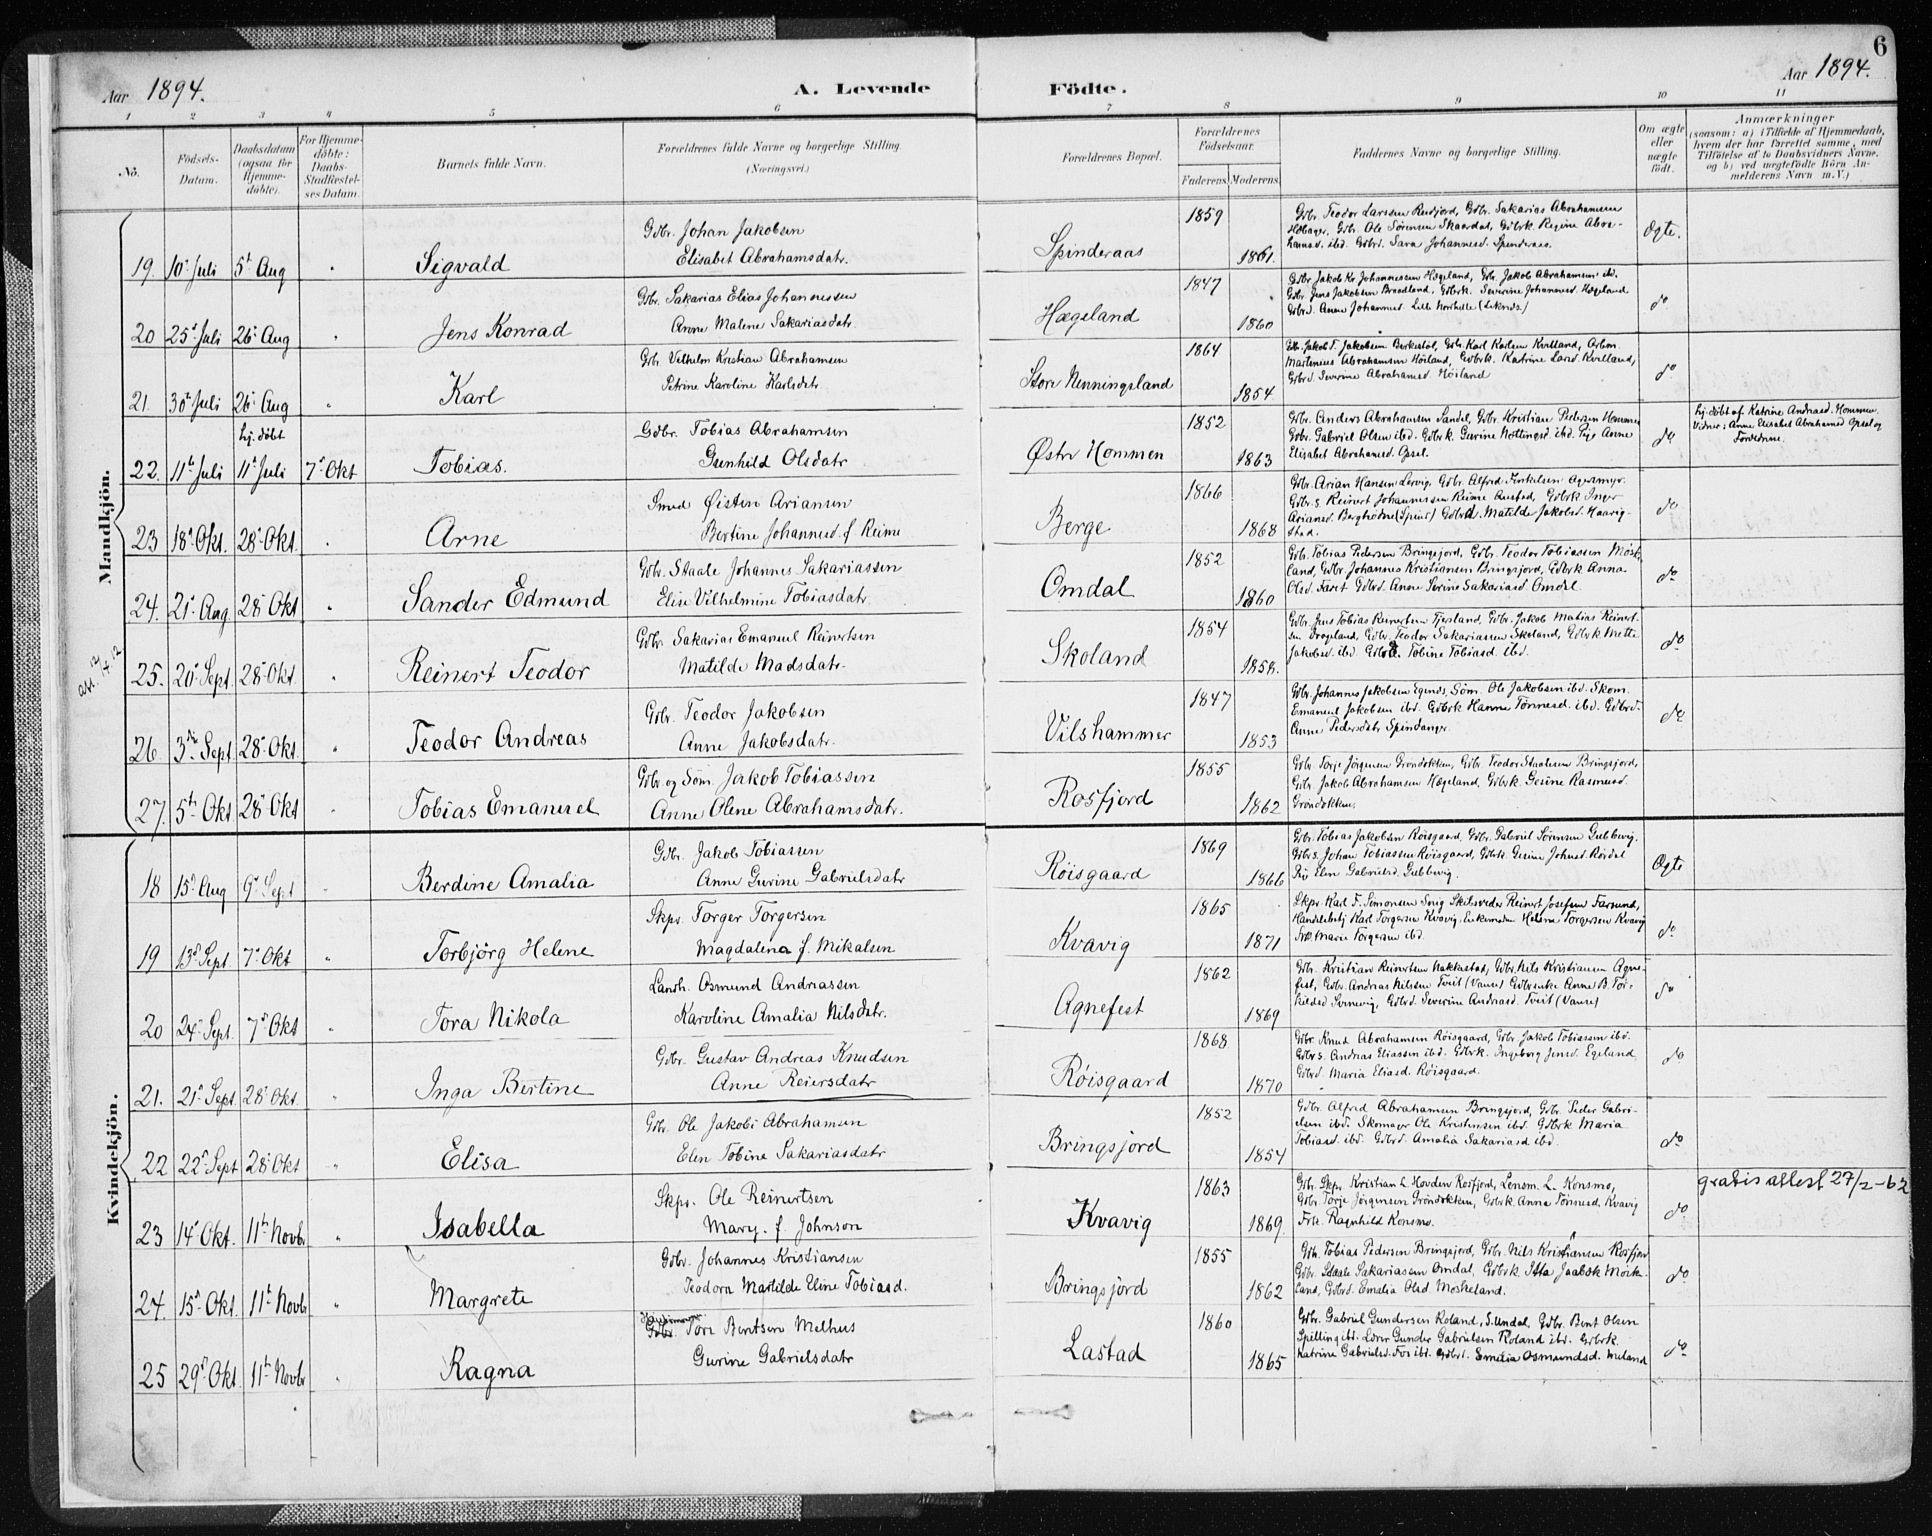 6
Aar 1894.
A. Levende Födte.
Aar 1894.
1 2 3 4 5 6 7 8 9 10 11
No.
Födsels-Datum.
Daabsdatum (ogsaa for Hjemme-döbte).
For Hjemme-döbte: Daabs-Stadfæstel-ses Datum.
Barnets fulde Navn.
Forældrenes fulde Navne og borgerlige Stilling. (Næringsvei.)
Forældrenes Bopæl.
Forældrenes Födselsaar.
Faderens. Moderens.
Faddernes Navne og borgerlige Stilling.
Om ægte eller uægte födt.
Anmærkninger
(saasom: a) i Tilfælde af Hjemmedaab, hvem der har forrettet samme, med Tilföielse af to Daabsvidners Navne, og b) ved uægtefödte Börn Anmelderens Navn m.V.)
Mandkjön.
19. 10' Juli 5t Aug Sigvald
Gdbr. Johan Jakobsen
Elisabet Abrahamsdatr.
Spinderaas 1859 1861.
Gdbr. Teodor Larssen Resfjord, Gdbr. Sakarias Abrahamsen
Gdbr. Ole Sörensen Skaardal, Gdbrk Regine Abra-
hamsd. ibd. Gdbrd. Sara Johannesd. Spinderaas.
Ægte.
20 25' Juli 26' Aug Jens Konrad
Gdbr. Sakarias Elias Johannessen
Anne Malene Sakariasdatr.
Hægeland 1847 1860
Gdbr Jakob Kr. Johannessen Hægeland, Gdbr. Jakob Abrahamsen ibd.
Gdbr. Jens Jakobsen Braadland, Gdbrk. Severine Johannesd. Hægeland
Gdbrd. Anne Johannesd Lille
do
21. 30' Juli 26' Aug Karl
Gdbr. Vilhelm Kristian Abrahamsen
Petrine Karoline Karlsdatr.
Store Nenningsland 1864 1854
Jakobsen Birkestöl, Gdbr. Karl Karlsen Kvilland, Arbm.
Martenius Abrahamsen Höiland, Gdbrk. Katrine Larsd. Kvilland,
Gdbrd. Severine Abrahamsd. Höiland
do
22. 11t Juli hj. döbt 11t Juli 7' Okt Tobias.
Gdbr. Tobias Abrahamsen
Gunhild Olsdatr
Østre Hommen 1852 1863
Gdbr. Anders Abrahamsen Sandel, Gdbr. Kristian Pedersen Hommen
Gdbr. Gabriel Olsen ibd. Gdbrk. Gurine ibd. Pige Anne
Elisabet Abrahamsd. Opsal.
do
hj. döbt af Katrine Andreasd. Hommen.
Vidner: Anne Elisabet Abrahamsd Opsal og
Forældrene.
23 18' Okt. 28' Okt. Arne
Smed Øisten Ariansen
Bertine Johannesd. f. Reime
Berge 1866 1868
Gdbr. Arian Hansen Lervig, Gdbr. Alfred Agersmyr.
Gdbr.s. Reinert Johannessen Reime Austad, Gdbrk Inger
Ariansd. Gdbrd. Matilde Jakobsd. Haarig-
stad.
do
24. 21' Aug 28' Okt Sander Edmund
Gdbr. Staale Johannes Sakariassen
Elise Vilhelmine Tobiasdatr.
Omdal 1852 1860
Gdbr. Tobias Pedersen Bringsjord, Gdbr. Teodor Tobiassen Mösk-
land, Gdbr. Johannes Kristiansen Bringsjord, Gdbrk Anna
Olsd. Faret Gdbrd. Anne Serine Sakariasd. Omdal
do
att. 12/12 14.
25. 20' Sept. 28' Okt. Reinert Teodor
Gdbr. Sakarias Emanuel Reinertsen
Matilde Madsdatr.
Skoland 1854 1858.
Gdbr. Jens Tobias Reinertsen Tjersland, Gdbr. Jakob Matias Reinert-
sen Drageland, Gdbr. Teodor Sakariassen Skoland, Gdbrk Mette
Jakobsd. ibd Gdbrd. Tobine Tobiasd. ibd.
do
26 3die Sept 28' Okt. Teodor Andreas
Gdbr. Teodor Jakobsen
Anne Jakobsdatr.
Vilshammer 1847 1853
Gdbr. Johannes Jakobsen Egenes, Söm. Ole Jakobsen ibd. Skom.
Emanuel Jakobsen ibd. Gdbrk Hanne Tönnesd. ibd. Gdbrd.
Anne Pedersdatr Spindanger.
do
27. 5t Okt 28' Okt Tobias Emanuel
Gdbr og Söm. Jakob Tobiassen
Anne Olene Abrahamsdatr.
Rosfjord 1855 1862
Gdbr Torje Jörgensen Gröndokken, Gdbr Teodor Staalesen Bringsjord,
Gdbr. Jakob Abrahamsen Hægeland, Gdbrk. Gesine Rasmusd.
Gröndokken.
Kvindekjön.
18 15' Aug 9' Sept Berdine Amalia
Gdbr. Jakob Tobiassen
Anne Gurine Gabrielsdatr
Röisgaard 1869 1866
Gdbr. Tobias Jakobsen Röisgaard, Gdbr. Gabriel Sörensen Gubbevig.
Gdbr s. Johan Tobiassen Röisgaard, Gdbrk. Gesine Johnsd. Rördal
Pig Elen Gabrielsd. Gubbevig.
Ægte
19 13' Sept. 7' Okt Torbjörg Helene
Skpr. Torger Torgersen
Magdalena f. Mikalsen
Kvavig 1865 1871
Skpr Karl F. Simonsen Snig Skibsreder Reinert Josefsen Farsund,
Handelsbetj Karl Torgersen Kvavig, Enkemadm Helene Torgersen Kvavig
Marie Torgersen ibd.
do
20 24' Sept. 7' Okt Tora Nikola
Landh. Osmund Andreassen
Karoline Amalia Nilsdatr.
Agnefest 1862 1869
Gdbr. Kristian Reinertsen Nakkestad, Gdbr. Nils Kristiansen Agne-
fest, Gdbr. Andreas Nilsen Tveit (Vanse) Gdbrenke Anne B. Tor-
kildsd Svinevig. Gdbrd. Severine Andreasd. Tveit (Vanse)
do
21. 21' Sept. 28' Okt. Inga Bertine
Gdbr. Gustav Andreas Knudsen
Anne Reiersdatr
Röisgaard 1868 1870
Gdbr. Knud Abrahamsen Röisgaard, Gdbr Jakob Tobiassen ibd.
Gdbr s. Andreas Eliassen ibd. Gdbrk. Ingeborg Jensd. Egeland
Gdbrd. Maria Eliasd. Röisgaard.
do
22 22' Sept 28' Okt Elisa
Gdbr. Ole Jakobi Abrahamsen
Elen Tobine Sakariasdatr
Bringsjord 1852 1854
Gdbr. Alfred Abrahamsen Bringsjord, Gdbr. Peder Gabri-
elsen ibd. Skomager Ole Kristensen ibd. Gdbrk Maria
Tobiasd. ibd. Gdbrd. Amalia Sakariasd ibd.
do
23 14' Okt. 11t Novbr Isabella
Skpr. Ole Reinertsen
Mary. f. Johnson
Kvavig 1863 1869.
Gdbr. Skpr. Kristian L Hovden Rosfjord, Lensm. L. Konsmo,
Gdbr Torje Jörgensen Gröndokken, Gdbrk Anna Tönnesd. Kvavig
Frk. Ragnhild Konsmo.
do
gratis attest 27/2-62
24. 15' Okt. 11t Novbr Margrete
Gdbr. Johannes Kristiansen
Teodora Matilde Eline Tobiasd.
Bringsjord 1855 1862
Gdbr. Tobias Pedersen Bringsjord, Gdbr. Nils Kristiansen Rosfjord
Gdbr. Staale Sakariassen Omdal, Gdbrk Itta Jaabsk Mösk-
land, Gdbrd. Emalia Olsd Moskeland.
do
25 29' Okt. 11t Novbr Ragna
Gdbr. Tore Bentsen Melhus
Gurine Gabrielsdatr
Lastad 1860 1865
Gdbr. Gabriel Gundersen Roland, S. Undal, Gdbr. Bent Olsen
Spilling ibd. Lærer Gunder Gabrielsen Roland ibd. Gdbrk.
Katrine Gabrielsd. Fos ibd. Gdbrd. Emelia Osmundsd. Meland
do